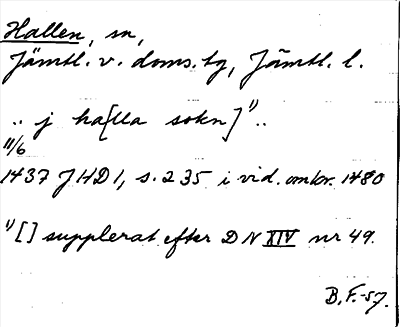 Hallen, sn,
Jämtl. v. doms. tg, Jämtl. l.
.. j ha[lla sokn]¹⁾..
11/6
1437 JHD 1, s. 235 i vid. omkr. 1480
¹⁾ [] supplerat efter DN XIV nr 49.
B.F.-57.